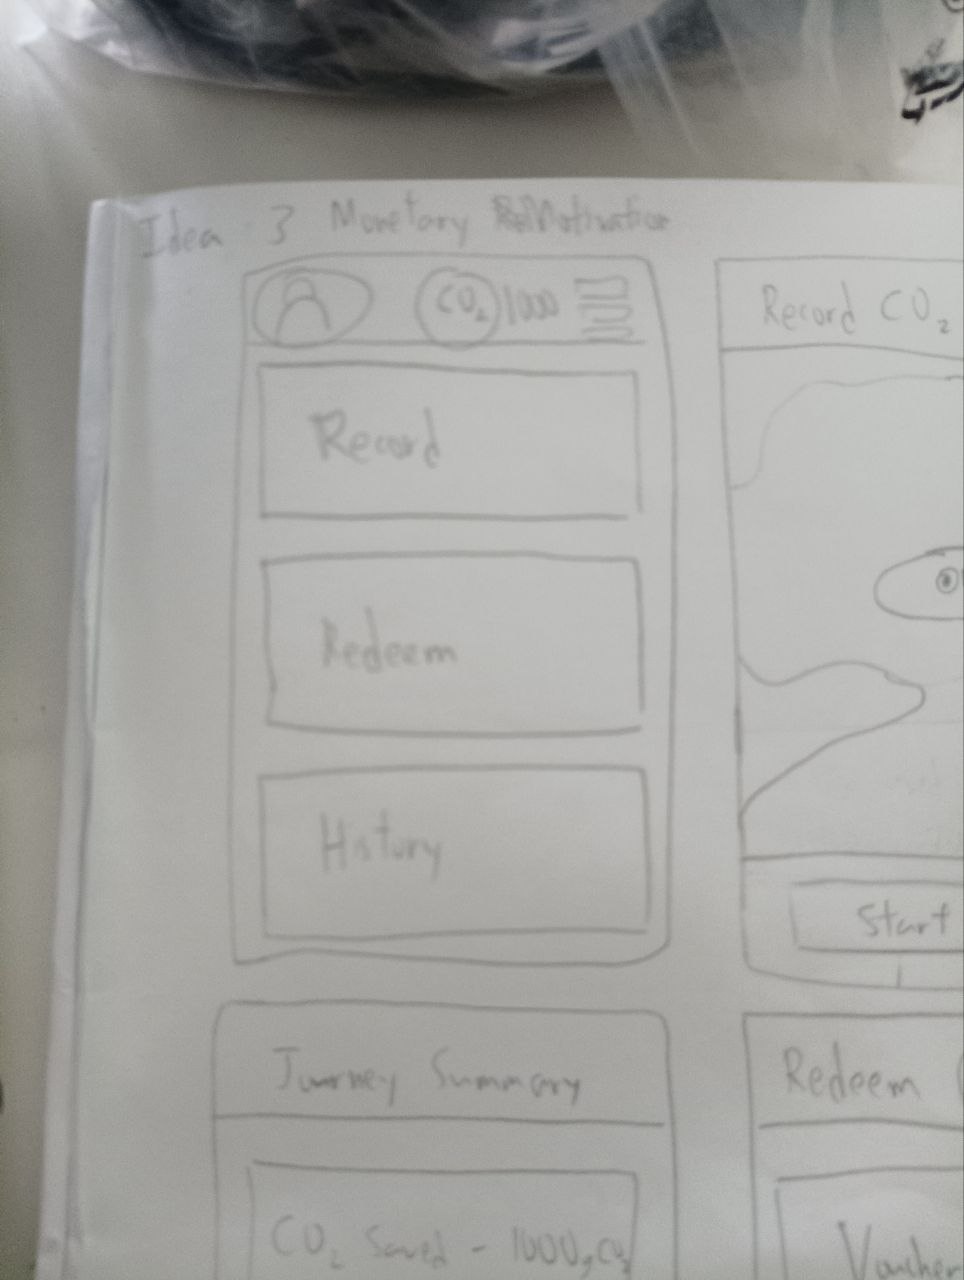 Idea 3 Monetary Motivation
CO₂ 1000
Record
Redeem
History
Record CO₂
Start
Journey Summary
CO₂ Saved - 1000g CO₂
Redeem
Voucher